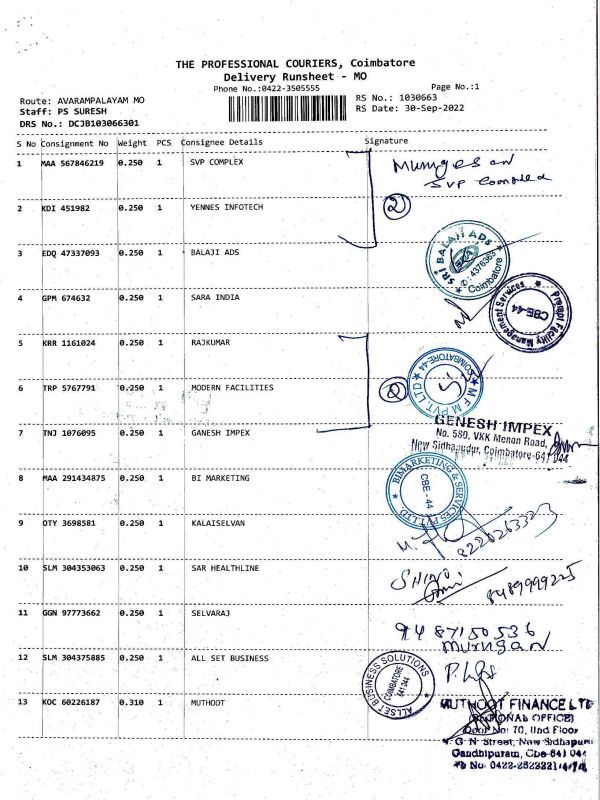 THE PROFESSIONAL COURIERS, Coimbatore
Delivery Runsheet - MO
Phone No.:0422-3505555
Page No.:1
Route: AVARAMPALAYAM MO
RS No.: 1030663
Staff: PS SURESH
RS Date: 30-Sep-2022
DRS No.: DCJB103066301
S No Consignment No Weight PCS Consignee Details Signature
1 MAA 567846219 0.250 1 SVP COMPLEX
Murugesan
SVP Complex
2 KDI 451982 0.250 1 YENNES INFOTECH
2
3 EDQ 47337093 0.250 1 BALAJI ADS
SRI BALAJI ADS
Coimbatore
4 GPM 674632 0.250 1 SARA INDIA
Prompt Facility Management Services
CBE-44
5 KRR 1161024 0.250 1 RAJKUMAR
6 TRP 5767791 0.250 1 MODERN FACILITIES
2
M F M PVT. LTD
COIMBATORE-44
7 TNJ 1076095 0.250 1 GANESH IMPEX
GENESH IMPEX
No. 580, VKK Menon Road,
New Sidhaapudur, Coimbatore-641 044
8 MAA 291434875 0.250 1 BI MARKETING
BIMARKETING & SERVICES PVT.LTD.
CBE - 44
9 OTY 3698581 0.250 1 KALAISELVAN
10 SLM 304353063 0.250 1 SAR HEALTHLINE
8489999225
11 GGN 97773662 0.250 1 SELVARAJ
9487150536
Murugan
12 SLM 304375885 0.250 1 ALL SET BUSINESS
ALLSET BUSINESS SOLUTIONS
COIMBATORE
641 044
13 KOC 60226187 0.310 1 MUTHOOT
MUTHOOT FINANCE LTD
(REGIONAL OFFICE)
Door No: 70, IInd Floor
G N Street, New Sidhapur
Gandhipuram, Cbe 641 044